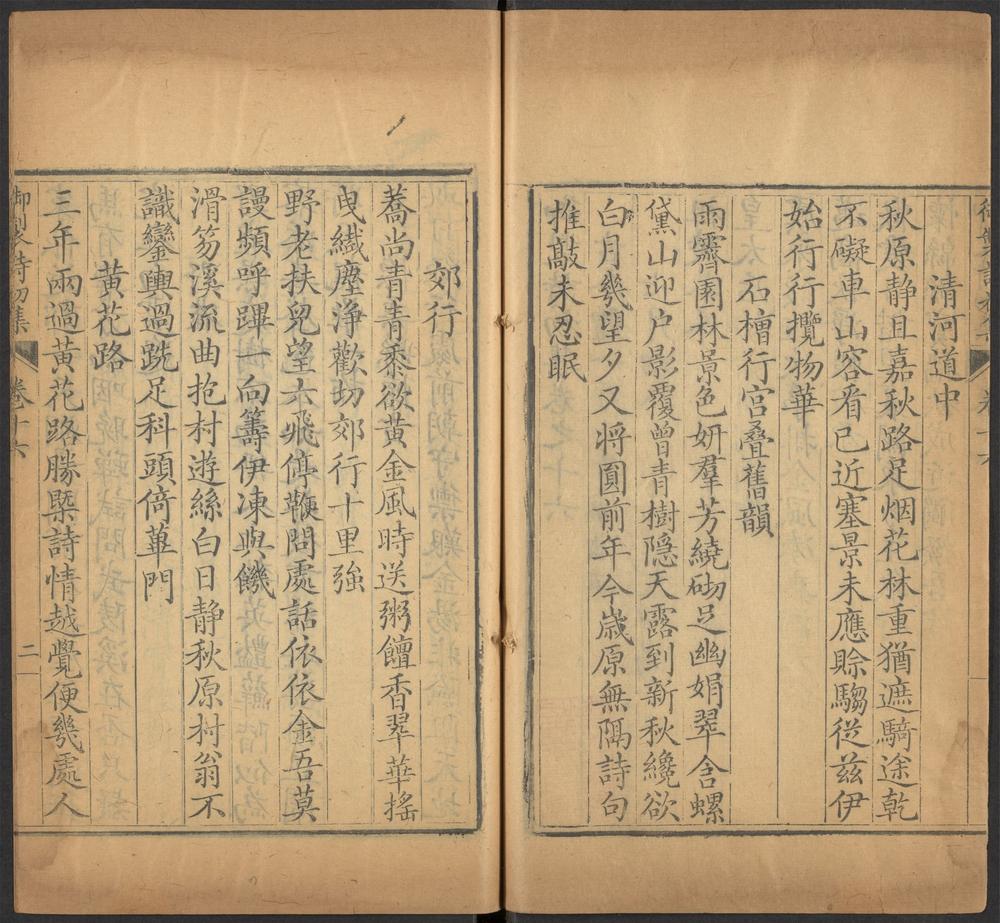 清河道中
秋原静且嘉秋路足烟花林重猶遮騎途乾
不礙車山容看已近塞景未應賒騶従兹伊
始行行攬物華
石槽行宮叠舊韻
雨霽園林景色妍羣芳繞砌足幽娟翠含螺
黛山迎户影覆曽青樹隠天露到新秋纔欲
白月幾望夕又将圓前年今歳原無隔詩句
推敲未忍眠
郊行
蕎尚青青黍欲黄金風時送粥饘香翠華揺
曵纎塵浄歡切郊行十里強
野老扶兒望六飛停鞭問處話依依金吾莫
謾頻呼蹕一向籌伊凍與饑
滑笏溪流曲抱村遊絲白日静秋原村翁不
識鑾輿過跣足科頭倚蓽門
黄花路
三年兩過黄花路勝槩詩情越覺便幾處人
御製詩初集 卷十六 二